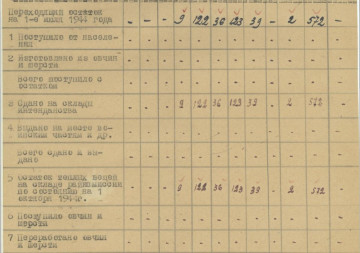 Переходящий остаток
на 1-е июля 1944 года - - - 9 122 36 123 39 - 2 572 -
1 Поступило от населе-
ния - - - - - - - - - - - -
2 Изготовлено из овчин
и шерсти - - - - - - - - - - - -
Всего поступило с
остатком - - - - - - - - - - - -
3 Сдано на склады
интендантства - - - 9 122 36 123 39 - 2 572 -
4 Выдано на месте во-
инским частям и др. - - - - - - - - - - - -
Всего сдано и вы-
дано - - - - - - - - - - - -
5 Остаток теплых вещей
на складе райкомиссии
по состоянию на 1
октября 1944г. - - - 9 122 36 123 39 - 2 572 -
6 Поступило овчин и
шерсти - - - - - - - - - - - -
7 Переработано овчин
и шерсти - - - - - - - - - - - -